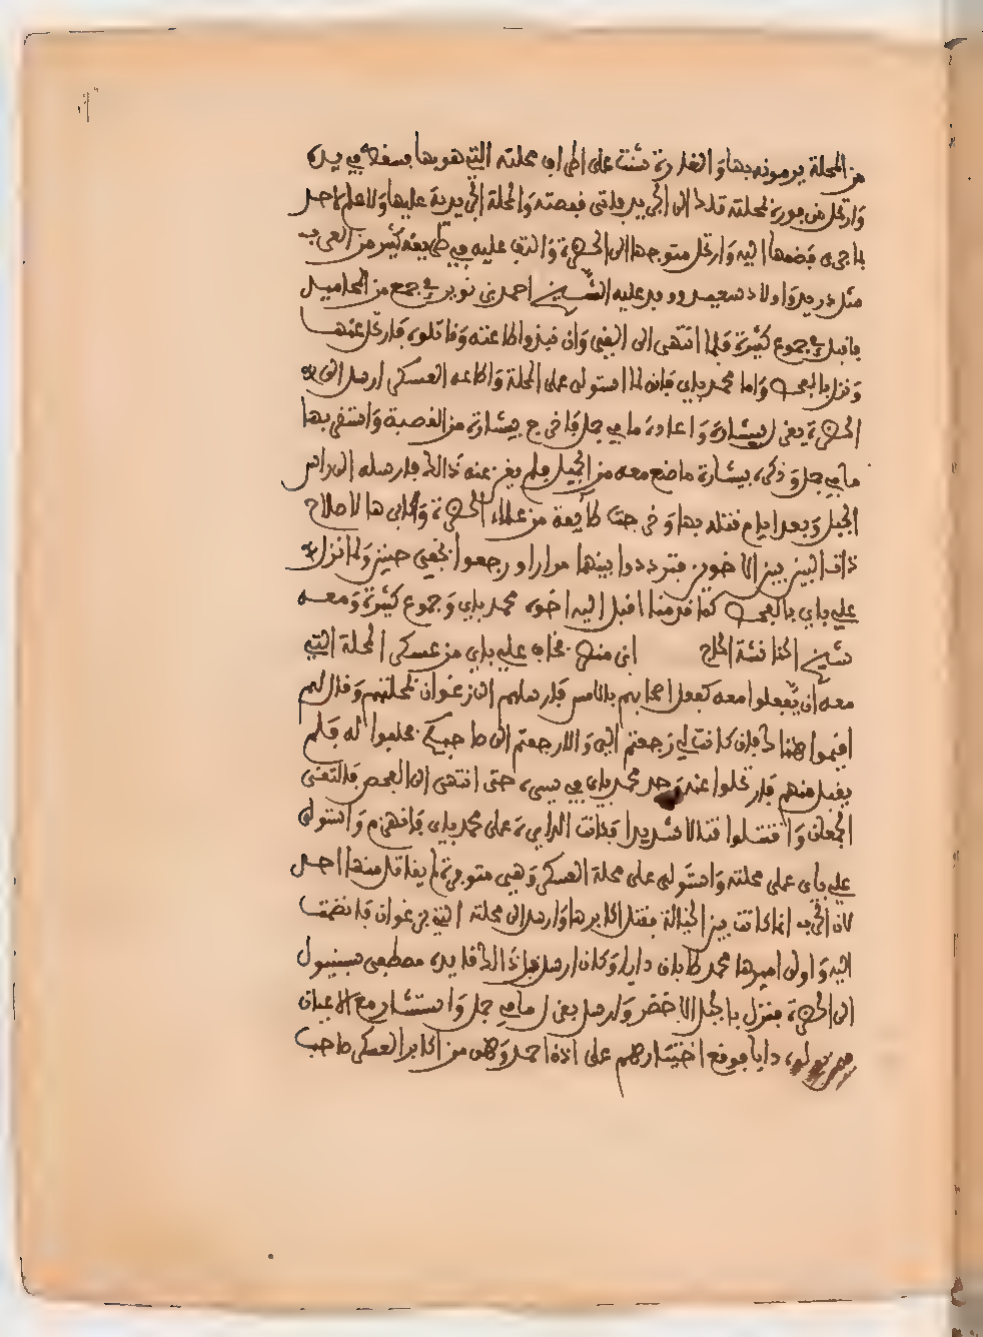 من المحلة يرمونه بها والغادرة شنت على اطراف محلته التي هو بها بسفط في يده
وارتحل من فوره لمحلته قادا الى الجريد فاتى قفصة والمحلة الجريدية عليها ولا علم لاحد
بما جرى فضمها اليه وارتحل متوجها الى الحضرة والتف عليه في طريقه كثير من العرب
مثل دريد واولاد سعيد ووفد عليه الشيخ احمد بن نوير في جمع من المحاميد
فاقبل في جموع كثيرة فلما انتهى الى القيروان نبذوا طاعته وقاتلوه فارتحل عنها
ونزل بالفحص واما محمد باي فانه لما استولى على المحلة واطاعه العسكر ارسل الى
الحضرة بعزل بيشارة واعادة مامي جمل فاخرج بيشارة من القصبة واستقر بها
مامي جمل وذكر بيشارة ما صنع معه من الجميل فلم يغن عنه ذالك فارسله الى راس
الجبل وبعد ايام قتله بها وخرجت طايفة من علماء الحضرة واكابرها لاصلاح
ذات البين بين الاخوين فترددوا بينهما مرارا ورجعوا بخفي حنين ولما نزل
علي باي بالفحص كما قدمنا اقبل اليه اخوه محمد باي وجموع كثيرة ومعه
شيخ الحنانشة الحاج ابن منصر فخاف علي باي من عسكر المحلة التي
معه ان يفعلوا معه كفعل اصحابهم بالامس فارسلهم الى زغوان لمحلتهم وقال لهم
اقيموا هنا فان كانت لي رجعتم الي والا رجعتم الى صاحبكم فحلفوا له فلم
يقبل منهم فارتحلوا عنه وجد محمد باي في سيره حتى انتهى الى الفحص فالتقى
الجمعان واقتتلوا قتالا شديدا فكانت الدايرة على محمد باي فانهزم واستولى
علي باي على محلته واستولى على محلة العسكر وهي متوفرة لم يقاتل منها احد
لان الحرب انما كانت بين الخيالة فقتل اكابرها وارسل الى محلة التي بزغوان فانضمت
اليه وولى اميرها محمد طاباق دايا وكان ارسل قبل ذالك قايده مصطفى سبنيول
الى الحضرة فنزل بالجبل الاخضر وارسل بعزل مامي جمل واستشار مع الاعيان
فيمن يولوه دايا فوقع اختيارهم على اذة احمد وهو من اكابر العسكر صاحب